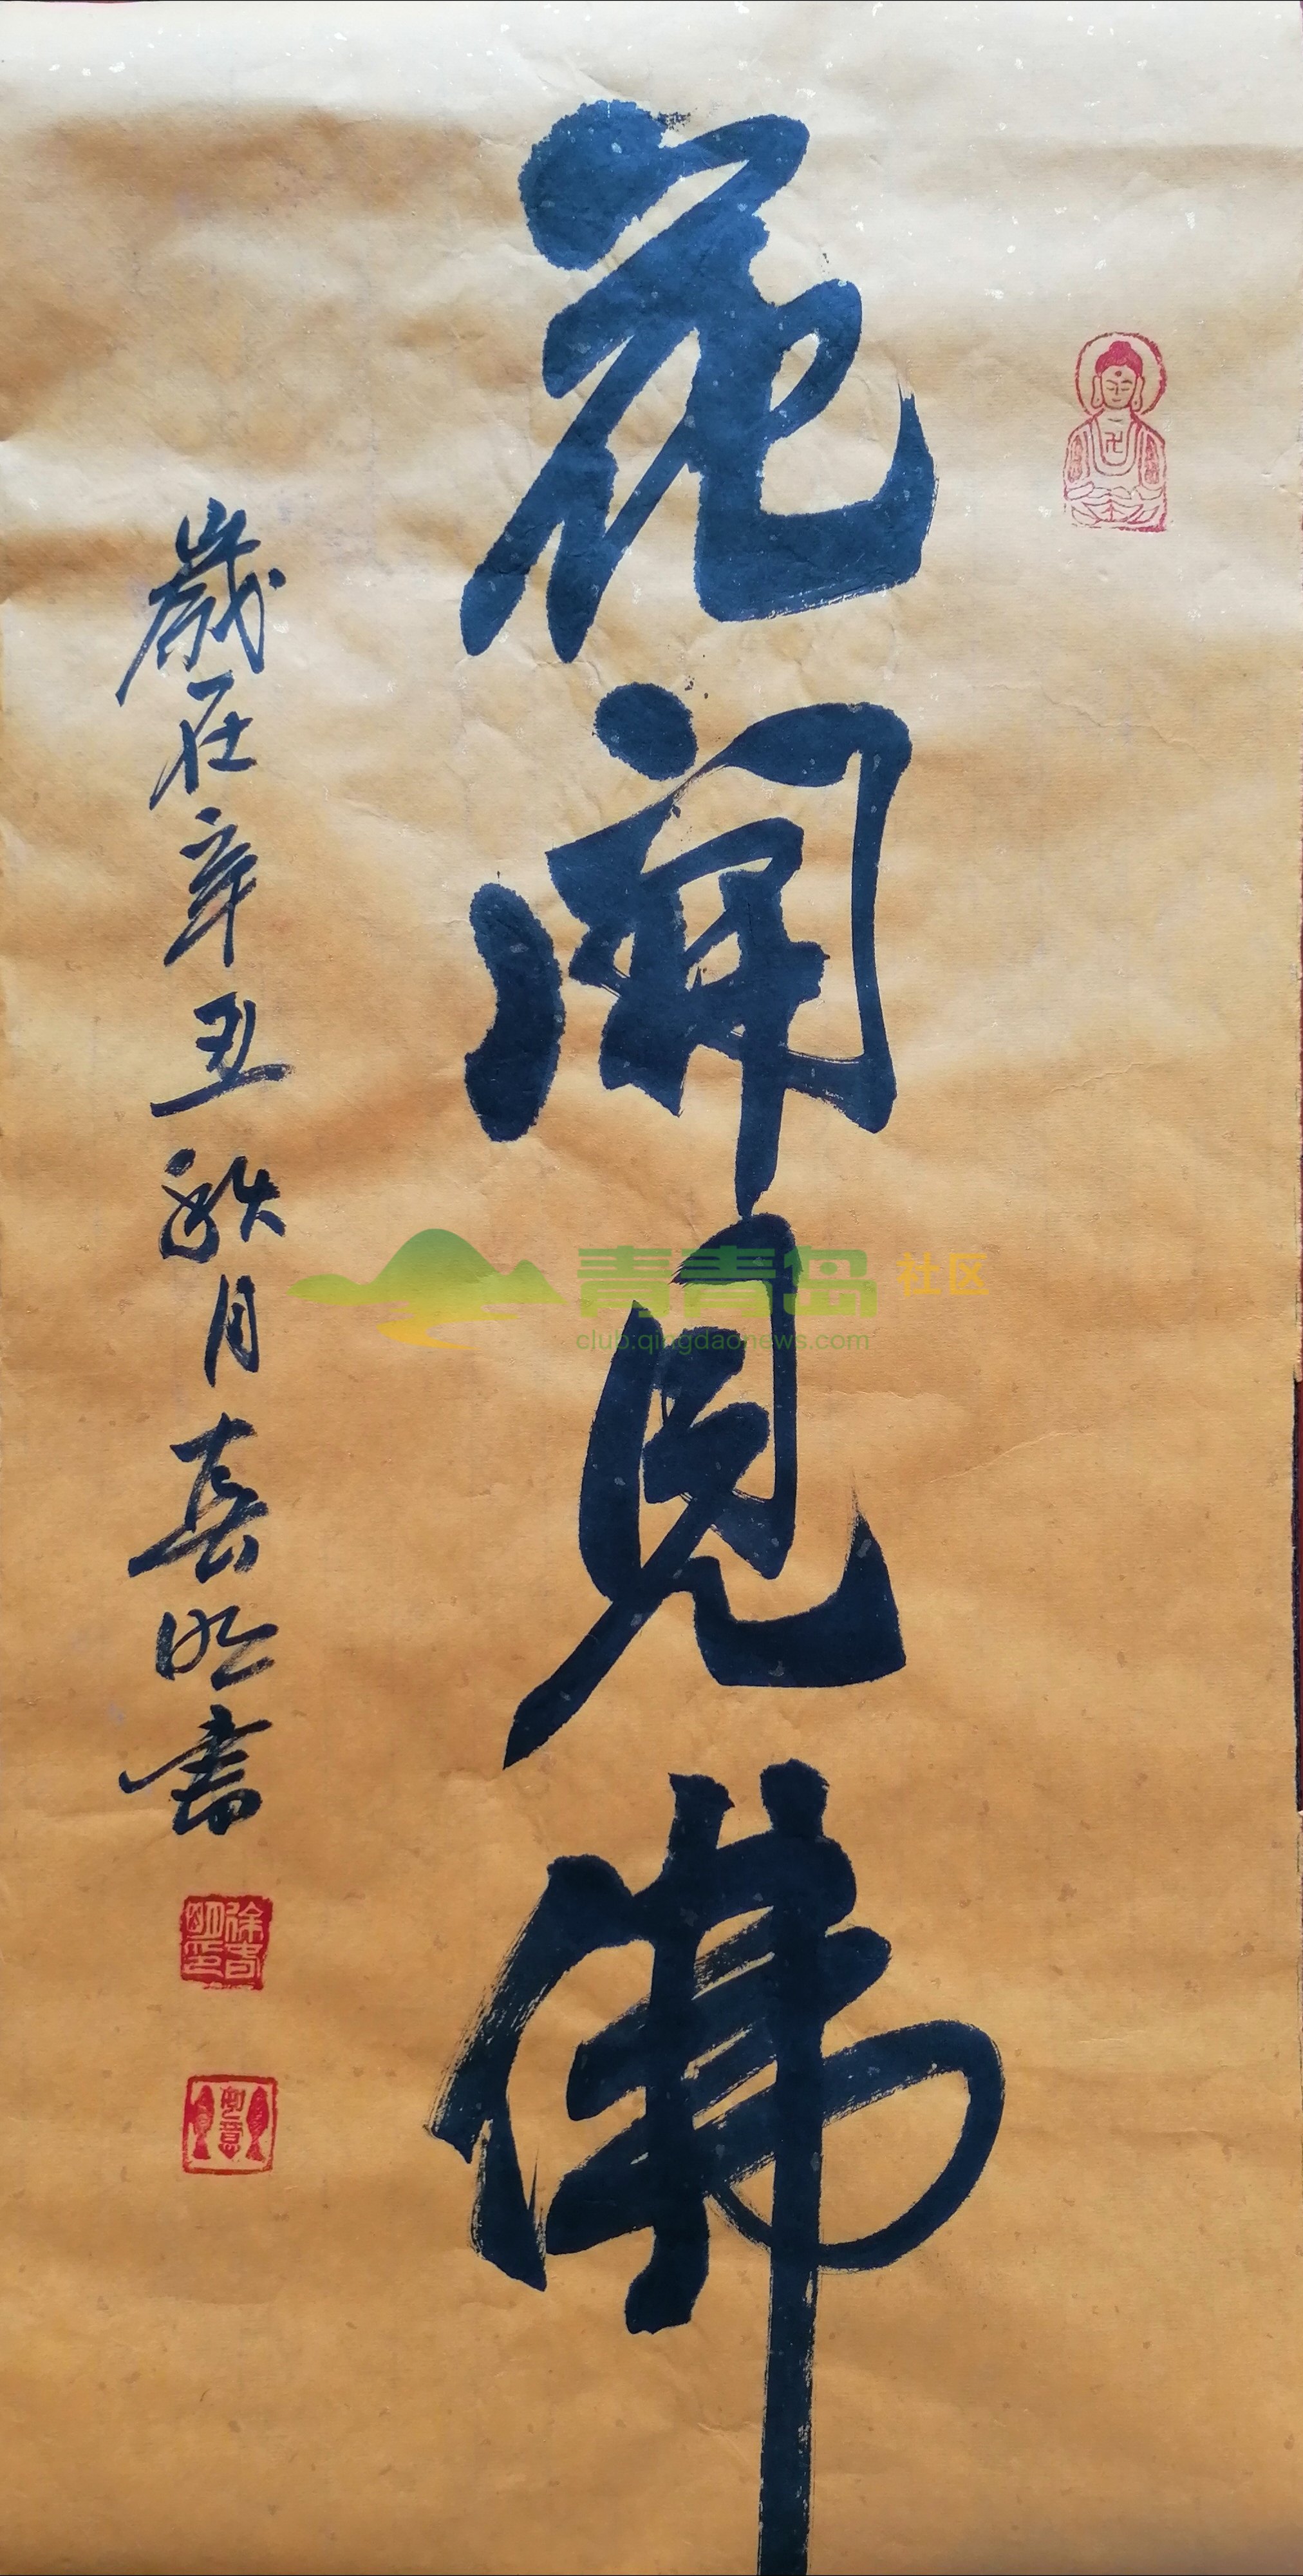 花開見佛
歲在辛丑秋月喜明書
徐喜明印
青青岛 社区
club.qingdaonews.com